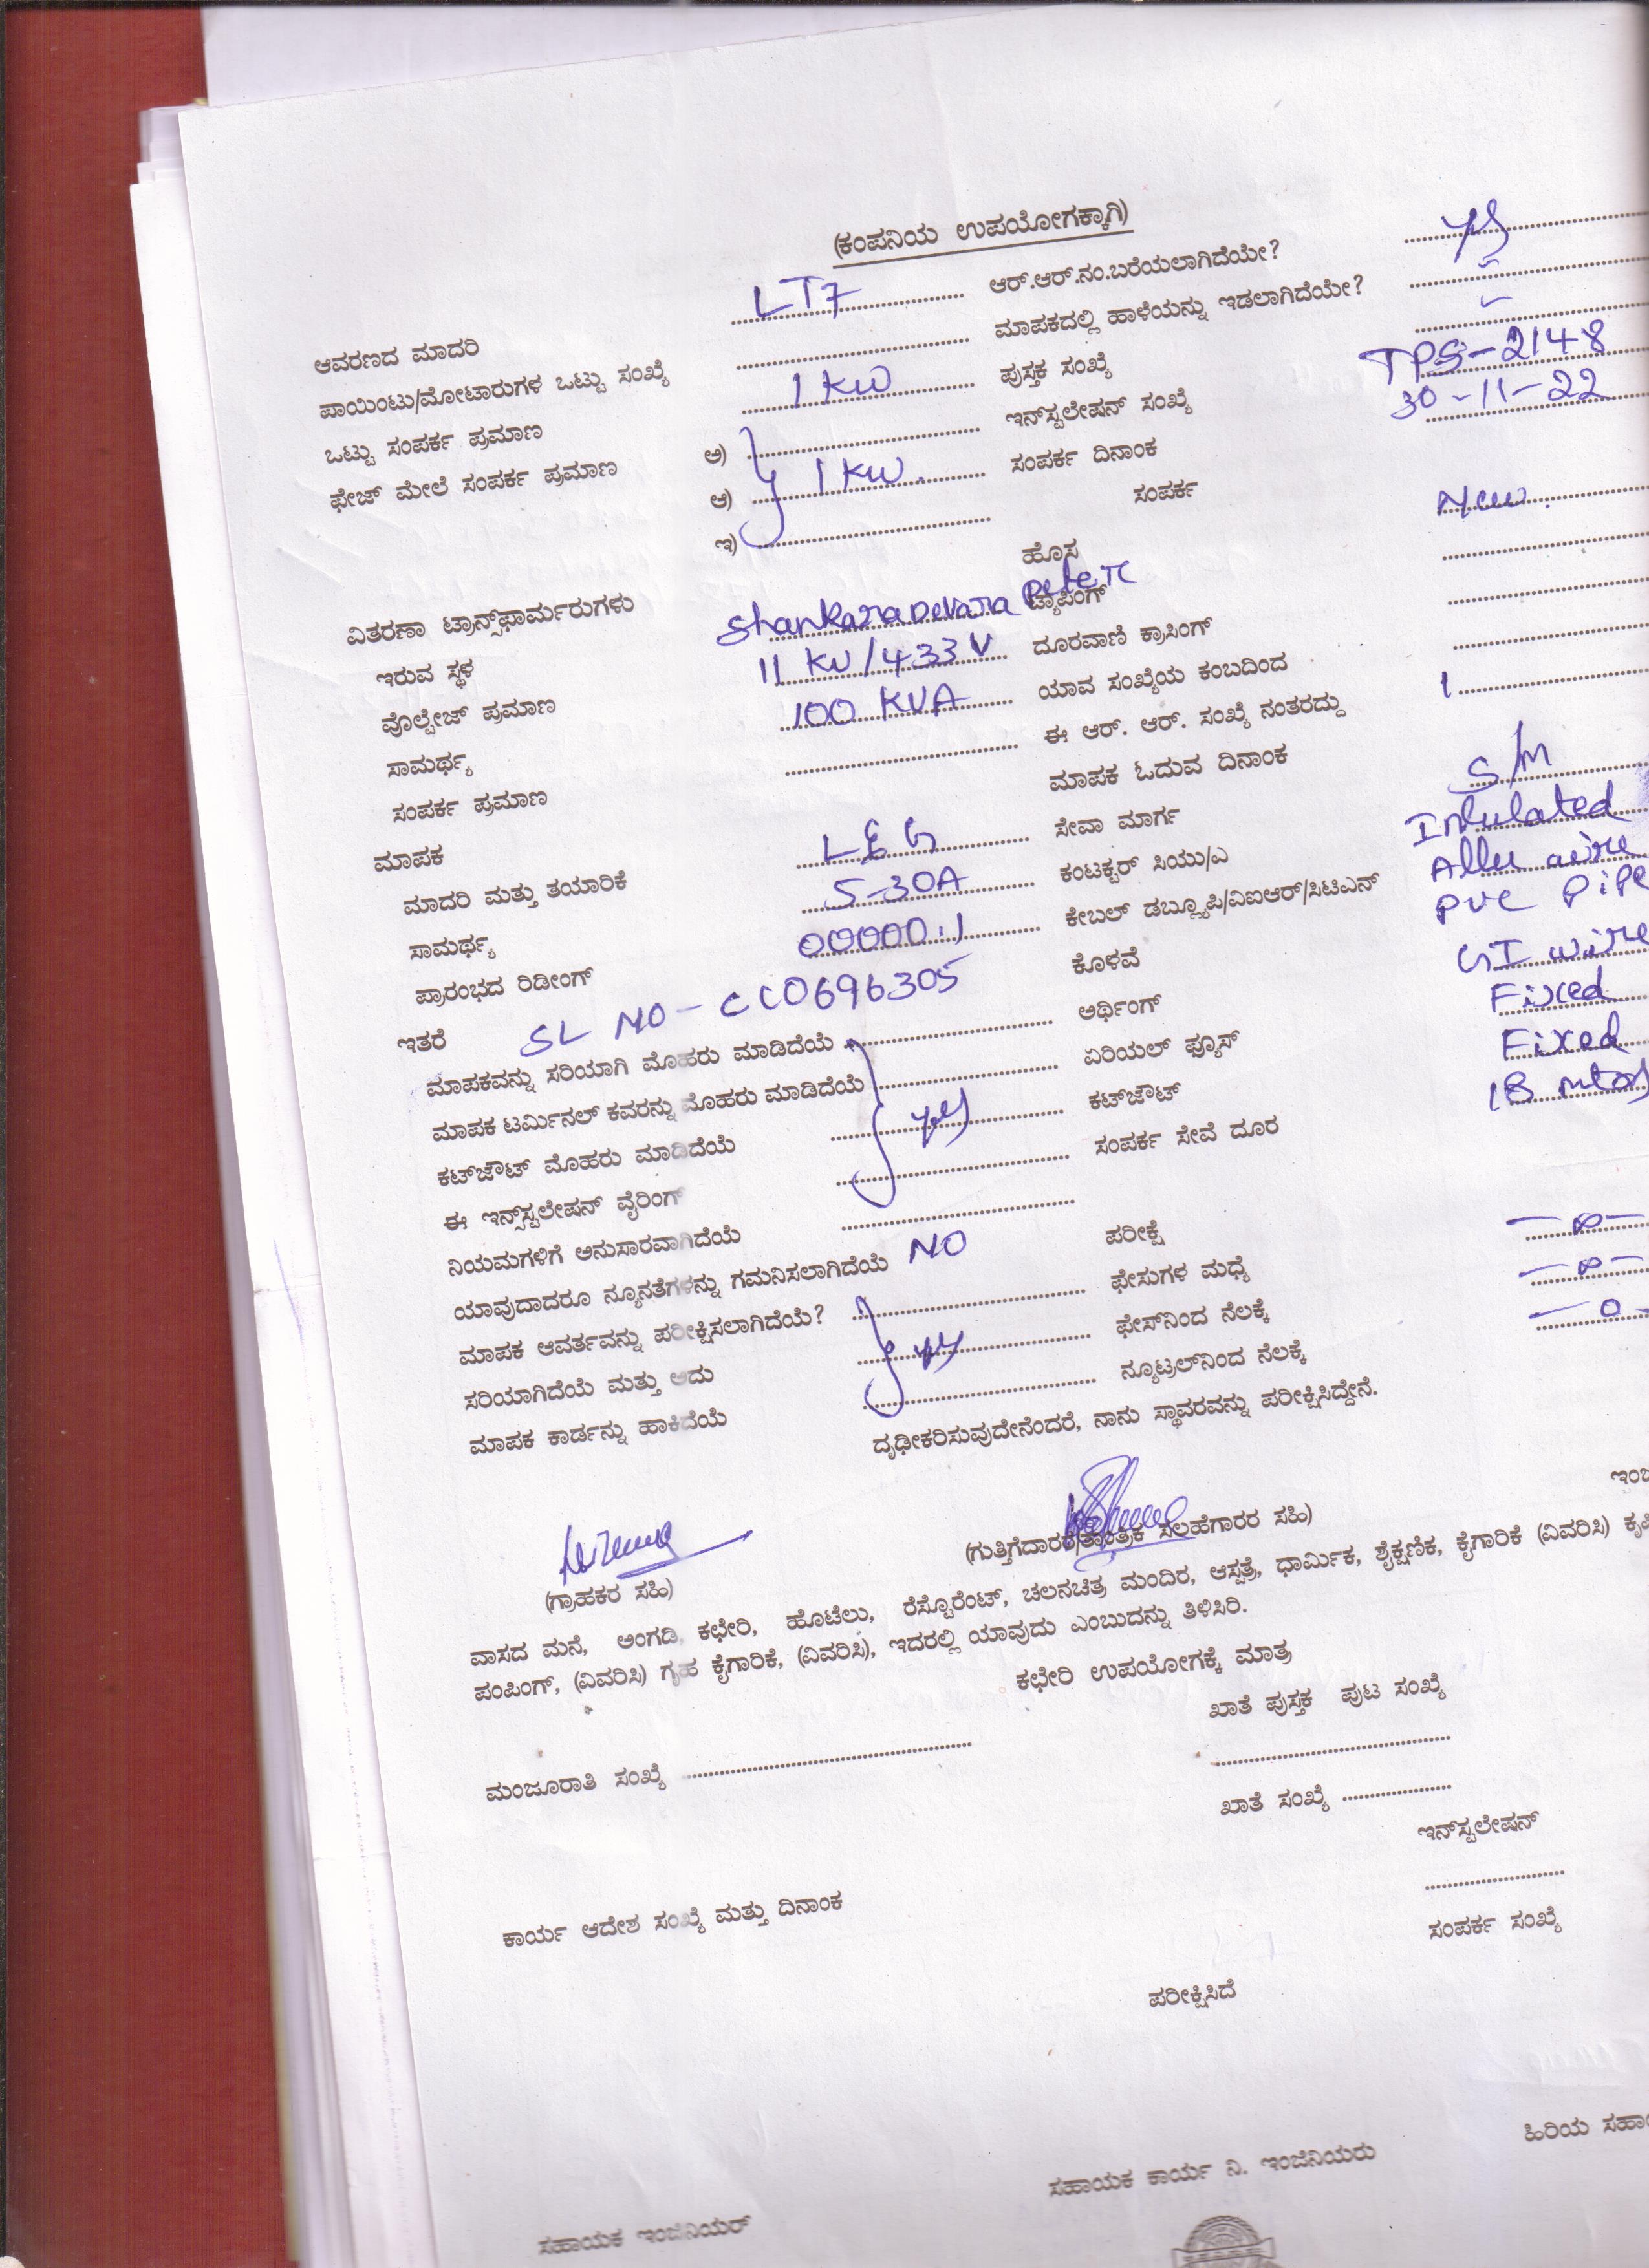 (ಕಂಪನಿಯ ಉಪಯೋಗಕ್ಕಾಗಿ)
ಆವರಣದ ಮಾದರಿ LT7 ಆರ್.ಆರ್.ನಂ.ಬರೆಯಲಾಗಿದೆಯೇ? yes
ಪಾಯಿಂಟು/ಮೋಟಾರುಗಳ ಒಟ್ಟು ಸಂಖ್ಯೆ ಮಾಪಕದಲ್ಲಿ ಹಾಳೆಯನ್ನು ಇಡಲಾಗಿದೆಯೇ?
ಒಟ್ಟು ಸಂಪರ್ಕ ಪ್ರಮಾಣ 1 KW ಪುಸ್ತಕ ಸಂಖ್ಯೆ
ಫೇಜ್ ಮೇಲೆ ಸಂಪರ್ಕ ಪ್ರಮಾಣ ಅ) ಇನ್‌ಸ್ಟಲೇಷನ್ ಸಂಖ್ಯೆ TPS-2148
ಆ) 1 KW. ಸಂಪರ್ಕ ದಿನಾಂಕ 30-11-22
ಇ) ಸಂಪರ್ಕ
ಹೊಸ New.
ವಿತರಣಾ ಟ್ರಾನ್ಸ್‌ಫಾರ್ಮರುಗಳು ಟ್ಯಾಪಿಂಗ್
ಇರುವ ಸ್ಥಳ Shankaradevara ದೂರವಾಣಿ ಕ್ರಾಸಿಂಗ್
ವೊಲ್ಟೇಜ್ ಪ್ರಮಾಣ 11 KV/433 V ಯಾವ ಸಂಖ್ಯೆಯ ಕಂಬದಿಂದ
ಸಾಮರ್ಥ್ಯ 100 KVA ಈ ಆರ್. ಆರ್. ಸಂಖ್ಯೆ ನಂತರದ್ದು
ಸಂಪರ್ಕ ಪ್ರಮಾಣ ಮಾಪಕ ಓದುವ ದಿನಾಂಕ 1
ಮಾಪಕ ಸೇವಾ ಮಾರ್ಗ S/M
ಮಾದರಿ ಮತ್ತು ತಯಾರಿಕೆ L&G ಕಂಟಕ್ಟರ್ ಸಿಯು/ಎ Insulated
ಸಾಮರ್ಥ್ಯ 5-30A ಕೇಬಲ್ ಡಬ್ಲ್ಯೂಪಿ/ವಿಐಆರ್/ಸಿಟಿಎನ್ wire
ಪ್ರಾರಂಭದ ರಿಡೀಂಗ್ 00000.1 ಕೊಳವೆ PVC Pipe
ಇತರೆ SL NO-CC0696305 ಅರ್ಥಿಂಗ್ GI wire
ಮಾಪಕವನ್ನು ಸರಿಯಾಗಿ ಮೊಹರು ಮಾಡಿದೆಯೆ ಏರಿಯಲ್ ಫ್ಯೂಸ್ Fixed
ಮಾಪಕ ಟರ್ಮಿನಲ್ ಕವರನ್ನು ಮೊಹರು ಮಾಡಿದೆಯೆ ಕಟ್‌ಔಟ್ Fixed
ಕಟ್‌ಔಟ್ ಮೊಹರು ಮಾಡಿದೆಯೆ yes ಸಂಪರ್ಕ ಸೇವೆ ದೂರ 18 mtrs
ಈ ಇನ್ಸ್‌ಸ್ಟಲೇಷನ್ ವೈರಿಂಗ್
ನಿಯಮಗಳಿಗೆ ಅನುಸಾರವಾಗಿದೆಯೆ ಪರೀಕ್ಷೆ
ಯಾವುದಾದರೂ ನ್ಯೂನತೆಗಳನ್ನು ಗಮನಿಸಲಾಗಿದೆಯೆ NO ಫೇಸುಗಳ ಮಧ್ಯೆ -∞-
ಮಾಪಕ ಆವರ್ತವನ್ನು ಪರೀಕ್ಷಿಸಲಾಗಿದೆಯೆ? ಫೇಸ್‌ನಿಂದ ನೆಲಕ್ಕೆ -∞-
ಸರಿಯಾಗಿದೆಯೆ ಮತ್ತು ಅದು yes ನ್ಯೂಟ್ರಲ್‌ನಿಂದ ನೆಲಕ್ಕೆ -0-
ಮಾಪಕ ಕಾರ್ಡನ್ನು ಹಾಕಿದೆಯೆ
ದೃಢೀಕರಿಸುವುದೇನೆಂದರೆ, ನಾನು ಸ್ಥಾವರವನ್ನು ಪರೀಕ್ಷಿಸಿದ್ದೇನೆ.
(ಗ್ರಾಹಕರ ಸಹಿ) (ಗುತ್ತಿಗೆದಾರರ/ತಾಂತ್ರಿಕ ಸಲಹೆಗಾರರ ಸಹಿ)
ವಾಸದ ಮನೆ, ಅಂಗಡಿ, ಕಛೇರಿ, ಹೊಟೆಲು, ರೆಸ್ಟೊರೆಂಟ್, ಚಲನಚಿತ್ರ ಮಂದಿರ, ಆಸ್ಪತ್ರೆ, ಧಾರ್ಮಿಕ, ಶೈಕ್ಷಣಿಕ, ಕೈಗಾರಿಕೆ (ವಿವರಿಸಿ)
ಪಂಪಿಂಗ್, (ವಿವರಿಸಿ) ಗೃಹ ಕೈಗಾರಿಕೆ, (ವಿವರಿಸಿ), ಇದರಲ್ಲಿ ಯಾವುದು ಎಂಬುದನ್ನು ತಿಳಿಸಿರಿ.
ಕಛೇರಿ ಉಪಯೋಗಕ್ಕೆ ಮಾತ್ರ
ಖಾತೆ ಪುಸ್ತಕ ಪುಟ ಸಂಖ್ಯೆ
ಮಂಜೂರಾತಿ ಸಂಖ್ಯೆ
ಖಾತೆ ಸಂಖ್ಯೆ
ಇನ್‌ಸ್ಟಲೇಷನ್
ಕಾರ್ಯ ಆದೇಶ ಸಂಖ್ಯೆ ಮತ್ತು ದಿನಾಂಕ
ಸಂಪರ್ಕ ಸಂಖ್ಯೆ
ಪರೀಕ್ಷಿಸಿದೆ
ಸಹಾಯಕ ಇಂಜಿನಿಯರ್ ಸಹಾಯಕ ಕಾರ್ಯ ನಿ. ಇಂಜಿನಿಯರು ಹಿರಿಯ